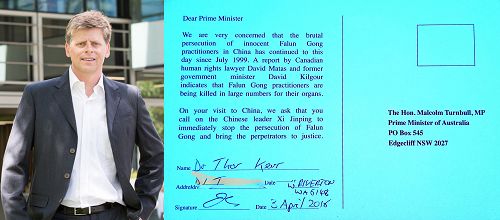 Dear Prime Minister
We are very concerned that the brutal
persecution of innocent Falun Gong
practitioners in China has continued to this
day since July 1999. A report by Canadian
human rights lawyer David Matas and former
government minister David Kilgour
indicates that Falun Gong practitioners are
being killed in large numbers for their organs.
On your visit to China, we ask that you
call on the Chinese leader Xi Jinping to
immediately stop the persecution of Falun
Gong and bring the perpetrators to justice.
Name Dr Thor Kerr
Address Date W. RIVERTON
WA 6148
Signature Date 3 April 2016
The Hon. Malcolm Turnbull, MP
Prime Minister of Australia
PO Box 545
Edgecliff NSW 2027